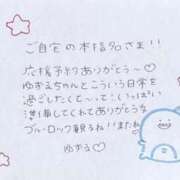 ご自宅の本指名さま!!
応援予約ありがとう〜♡
ゆずるちゃんとこういう日常を
過ごしたくて〜って：いっぱい
準備してくれてありがとう
ブルーロック観るね!!またね
ゆずる♡